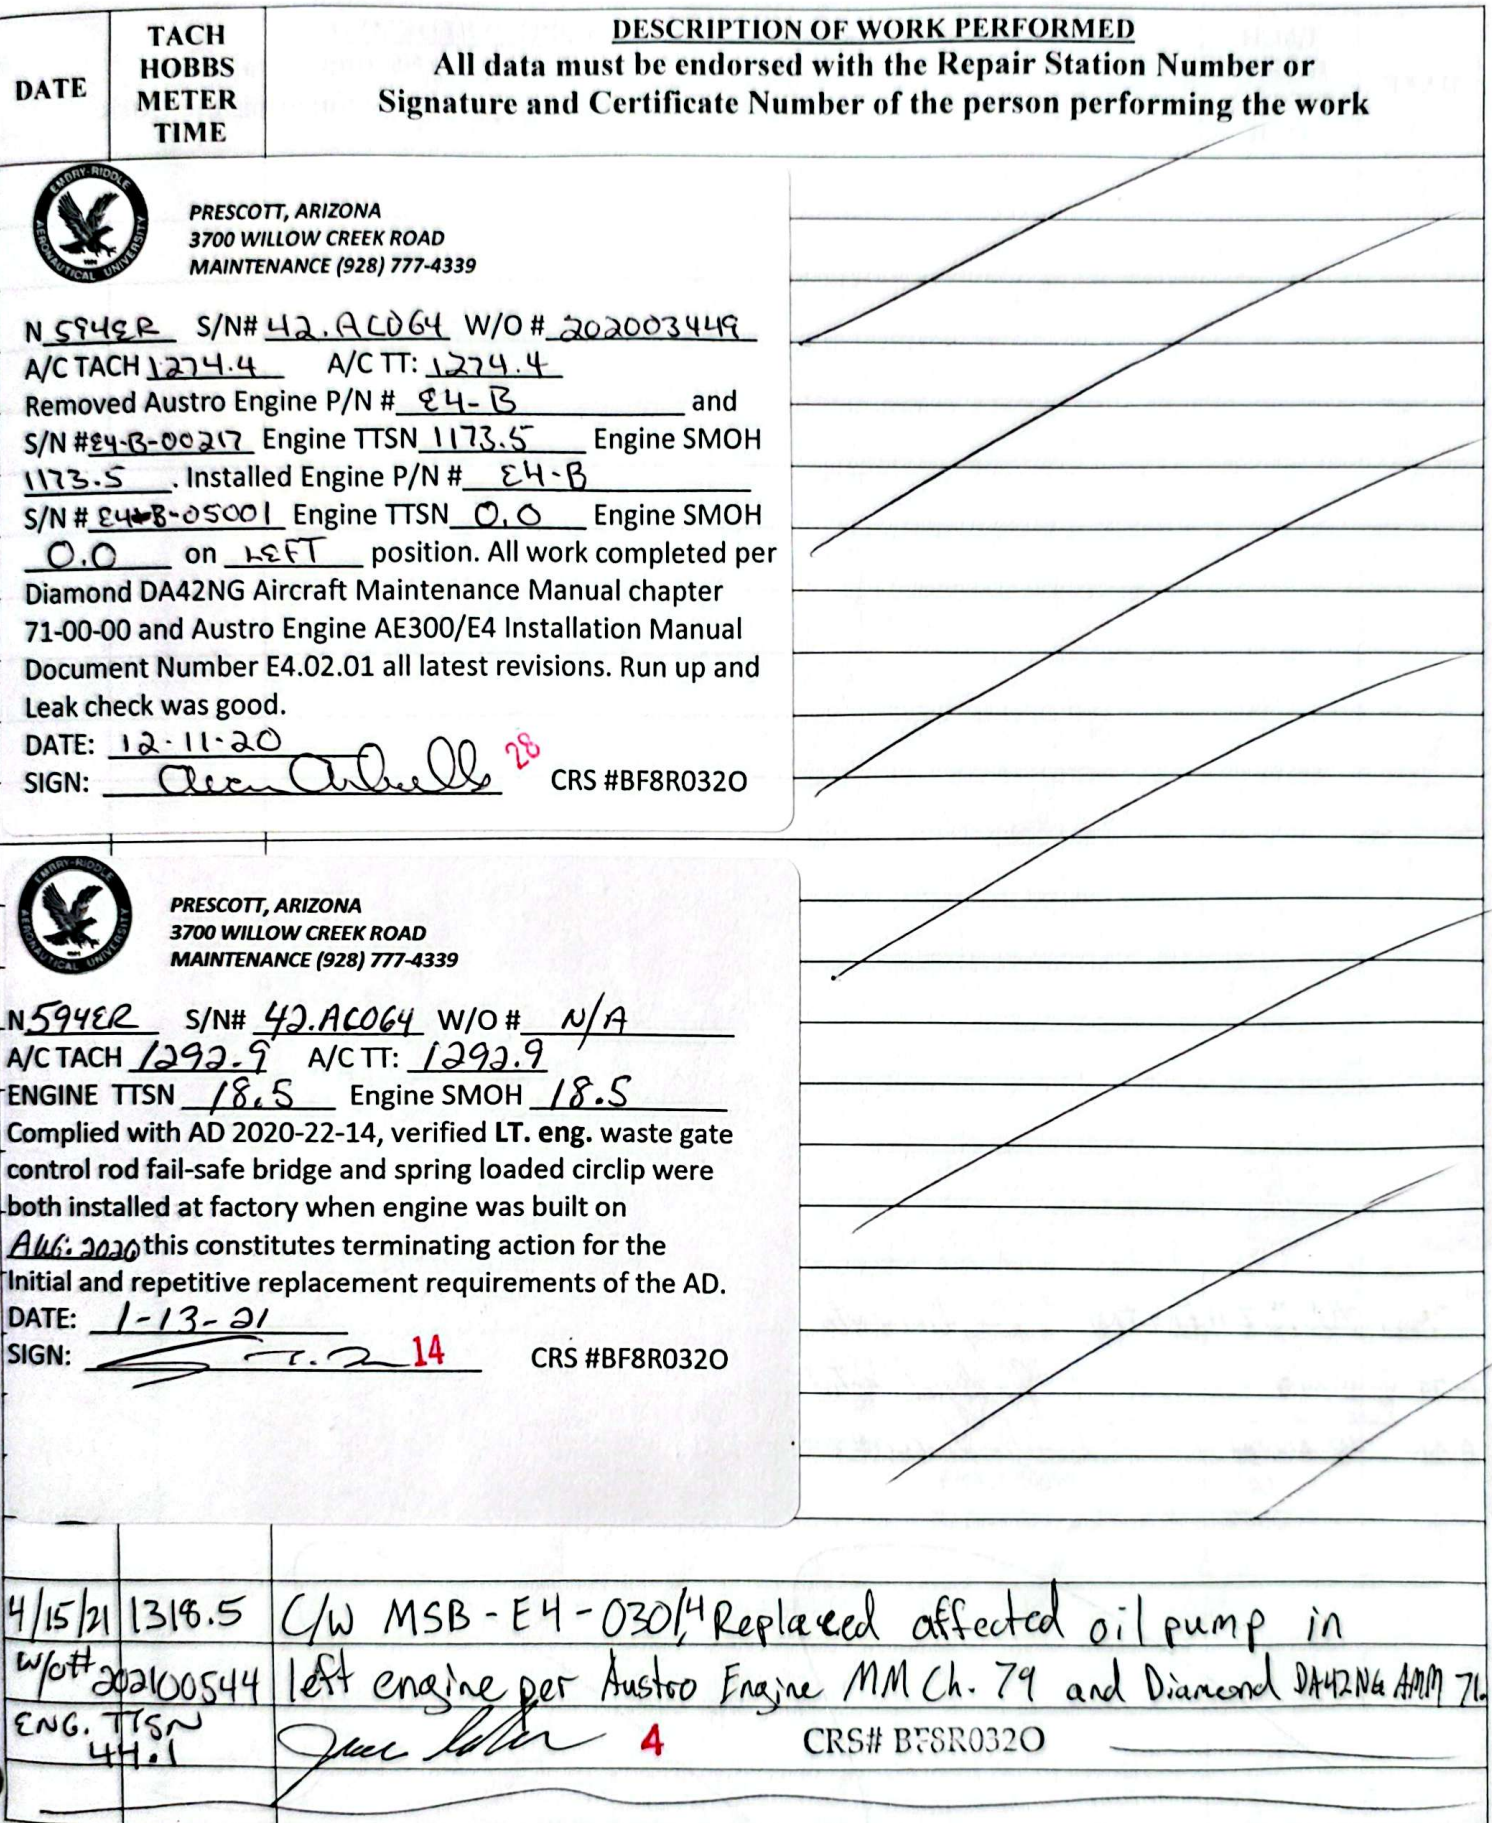 DATE
TACH
HOBBS
METER
TIME
DESCRIPTION OF WORK PERFORMED
All data must be endorsed with the Repair Station Number or
Signature and Certificate Number of the person performing the work
EMBRY-RIDDLE
AERONAUTICAL UNIVERSITY
PRESCOTT, ARIZONA
3700 WILLOW CREEK ROAD
MAINTENANCE (928) 777-4339
N 594ER S/N# 42.AC064 W/O # 202003449
A/C TACH 1274.4 A/C TT: 1274.4
Removed Austro Engine P/N # E4-B and
S/N # E4-B-00217 Engine TTSN 1173.5 Engine SMOH
1173.5 . Installed Engine P/N # E4-B
S/N # E4-B-05001 Engine TTSN 0.0 Engine SMOH
0.0 on LEFT position. All work completed per
Diamond DA42NG Aircraft Maintenance Manual chapter
71-00-00 and Austro Engine AE300/E4 Installation Manual
Document Number E4.02.01 all latest revisions. Run up and
Leak check was good.
DATE: 12-11-20
SIGN: 28 CRS #BF8R032O
EMBRY-RIDDLE
AERONAUTICAL UNIVERSITY
PRESCOTT, ARIZONA
3700 WILLOW CREEK ROAD
MAINTENANCE (928) 777-4339
N 594ER S/N# 42.AC064 W/O # N/A
A/C TACH 1292.9 A/C TT: 1292.9
ENGINE TTSN 18.5 Engine SMOH 18.5
Complied with AD 2020-22-14, verified LT. eng. waste gate
control rod fail-safe bridge and spring loaded circlip were
both installed at factory when engine was built on
AUG. 2020 this constitutes terminating action for the
Initial and repetitive replacement requirements of the AD.
DATE: 1-13-21
SIGN: 14 CRS #BF8R032O
4/15/21 1318.5 C/W MSB-E4-030/4, Replaced affected oil pump in
W/O# 202100544 left engine per Austro Engine MM Ch. 79 and Diamond DA42NG AMM 71.
ENG. TTSN
44.1 4 CRS# BF8R032O